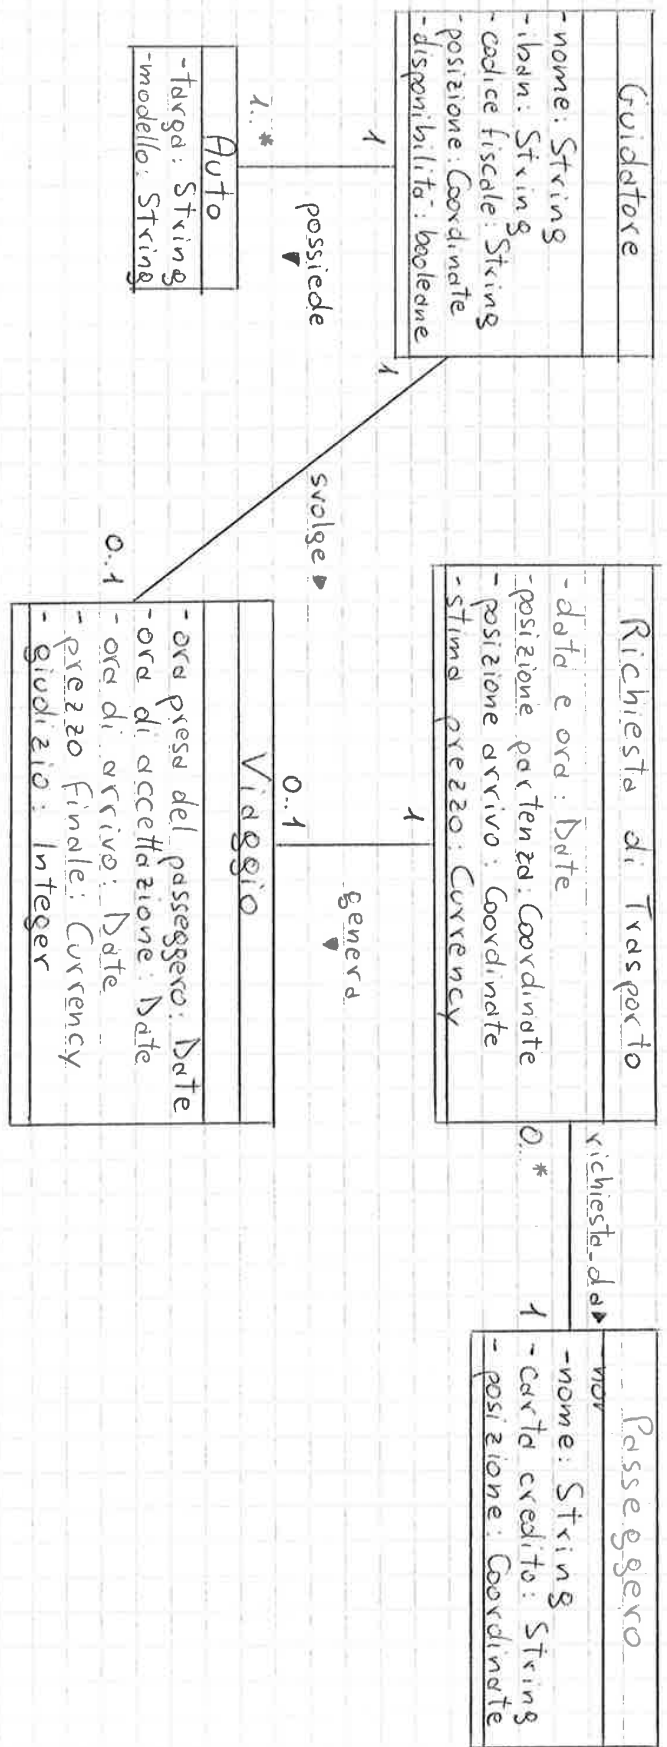 Guidatore
-nome: String
-iban: String
-codice fiscale: String
-posizione: Coordinate
-disponibilità: booleane
1
possiede
1..*
Auto
-targa: String
-modello: String
1
svolge
0..1
Richiesta di Trasporto
-data e ora: Date
-posizione partenza: Coordinate
-posizione arrivo: Coordinate
-stima prezzo: Currency
1
genera
0..1
Viaggio
-ora presa del passeggero: Date
-ora di accettazione: Date
-ora di arrivo: Date
-prezzo finale: Currency
-giudizio: Integer
0..*
richiesta_da
1
Passeggero
-nom
-nome: String
-carta credito: String
-posizione: Coordinate